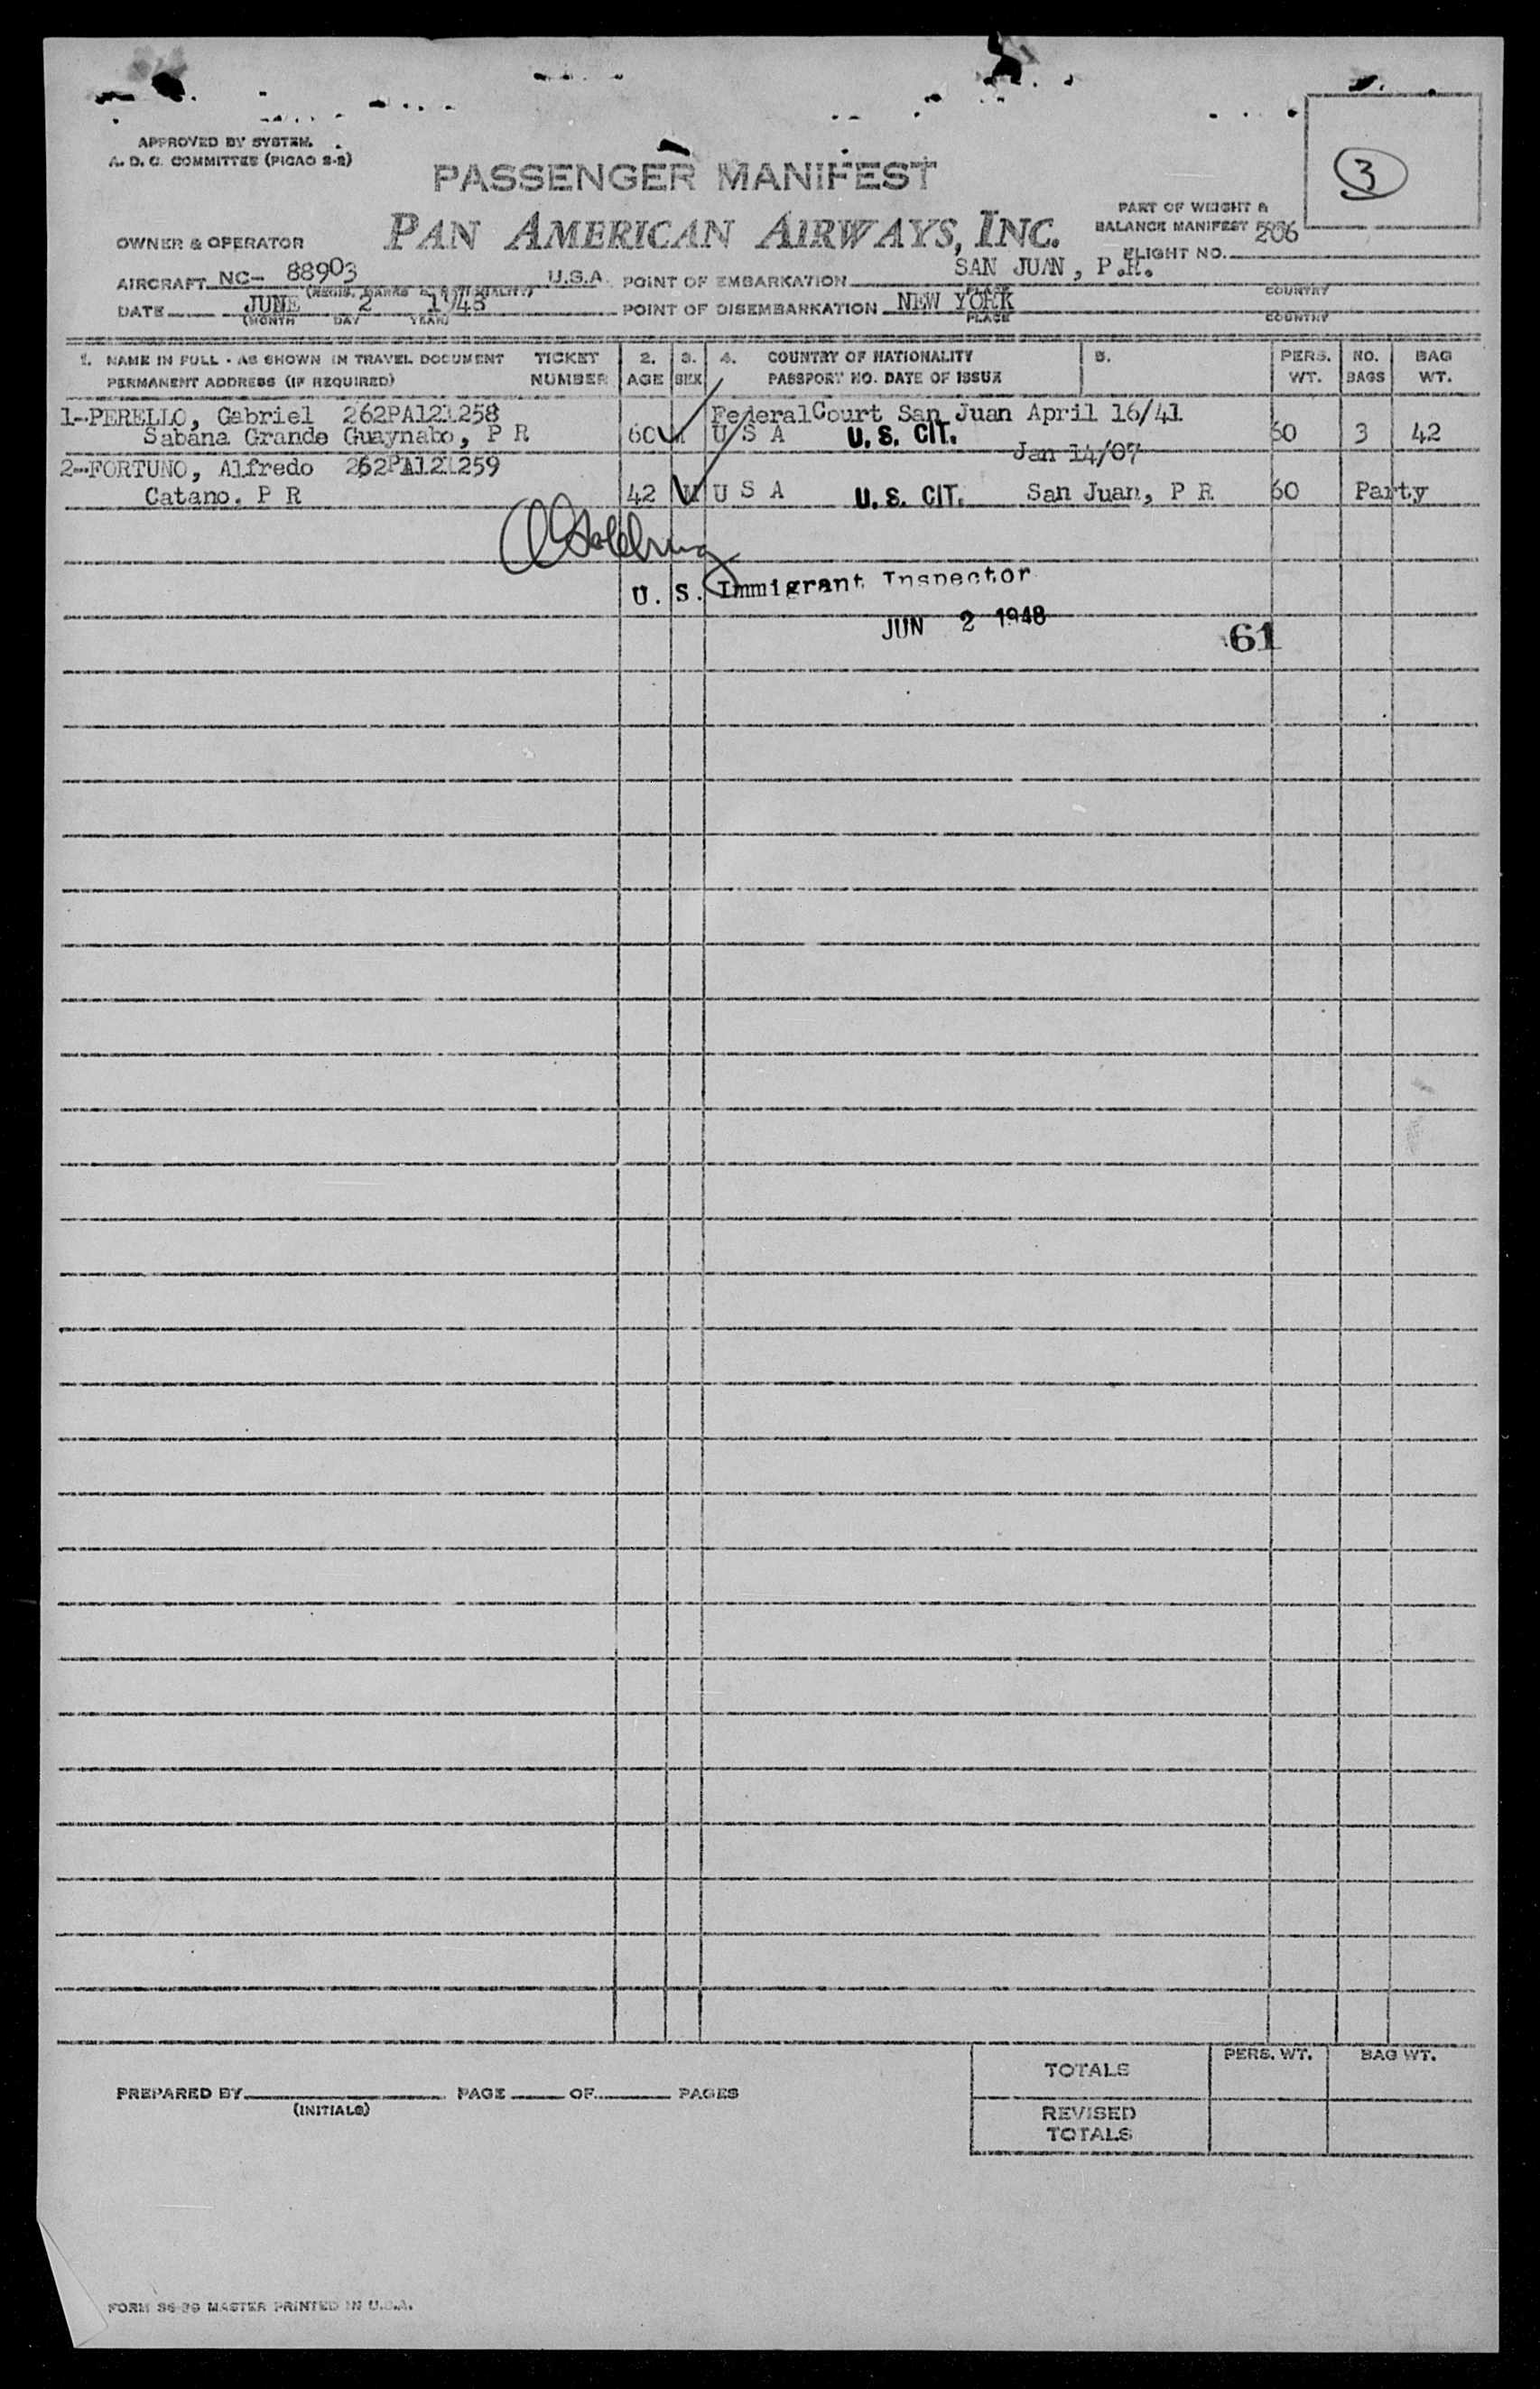 3
APPROVED BY SYSTEM.
A. D. C. COMMITTEE (PICAO 2-2)
PASSENGER MANIFEST
PAN AMERICAN AIRWAYS, INC.
PART OF WEIGHT &
BALANCE MANIFEST
206
FLIGHT NO.
OWNER & OPERATOR
AIRCRAFT NC- 88903 U.S.A. POINT OF EMBARKATION SAN JUAN, P.R.
PLACE COUNTRY
DATE JUNE 2 1948 POINT OF DISEMBARKATION NEW YORK
(MONTH DAY YEAR) PLACE COUNTRY
1. NAME IN FULL - AS SHOWN IN TRAVEL DOCUMENT TICKET 2. 3. 4. COUNTRY OF NATIONALITY 5. PERS. NO. BAG
PERMANENT ADDRESS (IF REQUIRED) NUMBER AGE SEX PASSPORT NO. DATE OF ISSUE WT. BAGS WT.
1-PERELLO, Gabriel 262PA121258 FederalCourt San Juan April 16/41
Sabana Grande Guaynabo, P R 60 U S A U. S. CIT. 60 3 42
Jan 14/07
2-FORTUNO, Alfredo 262PA121259
Catano. P R 42 M U S A U. S. CIT. San Juan, P R 60 Party
U. S. Immigrant Inspector
JUN 2 1948
61
TOTALS PERS. WT. BAG WT.
PREPARED BY PAGE OF PAGES
(INITIALS)
REVISED
TOTALS
FORM 36-39 MASTER PRINTED IN U.S.A.